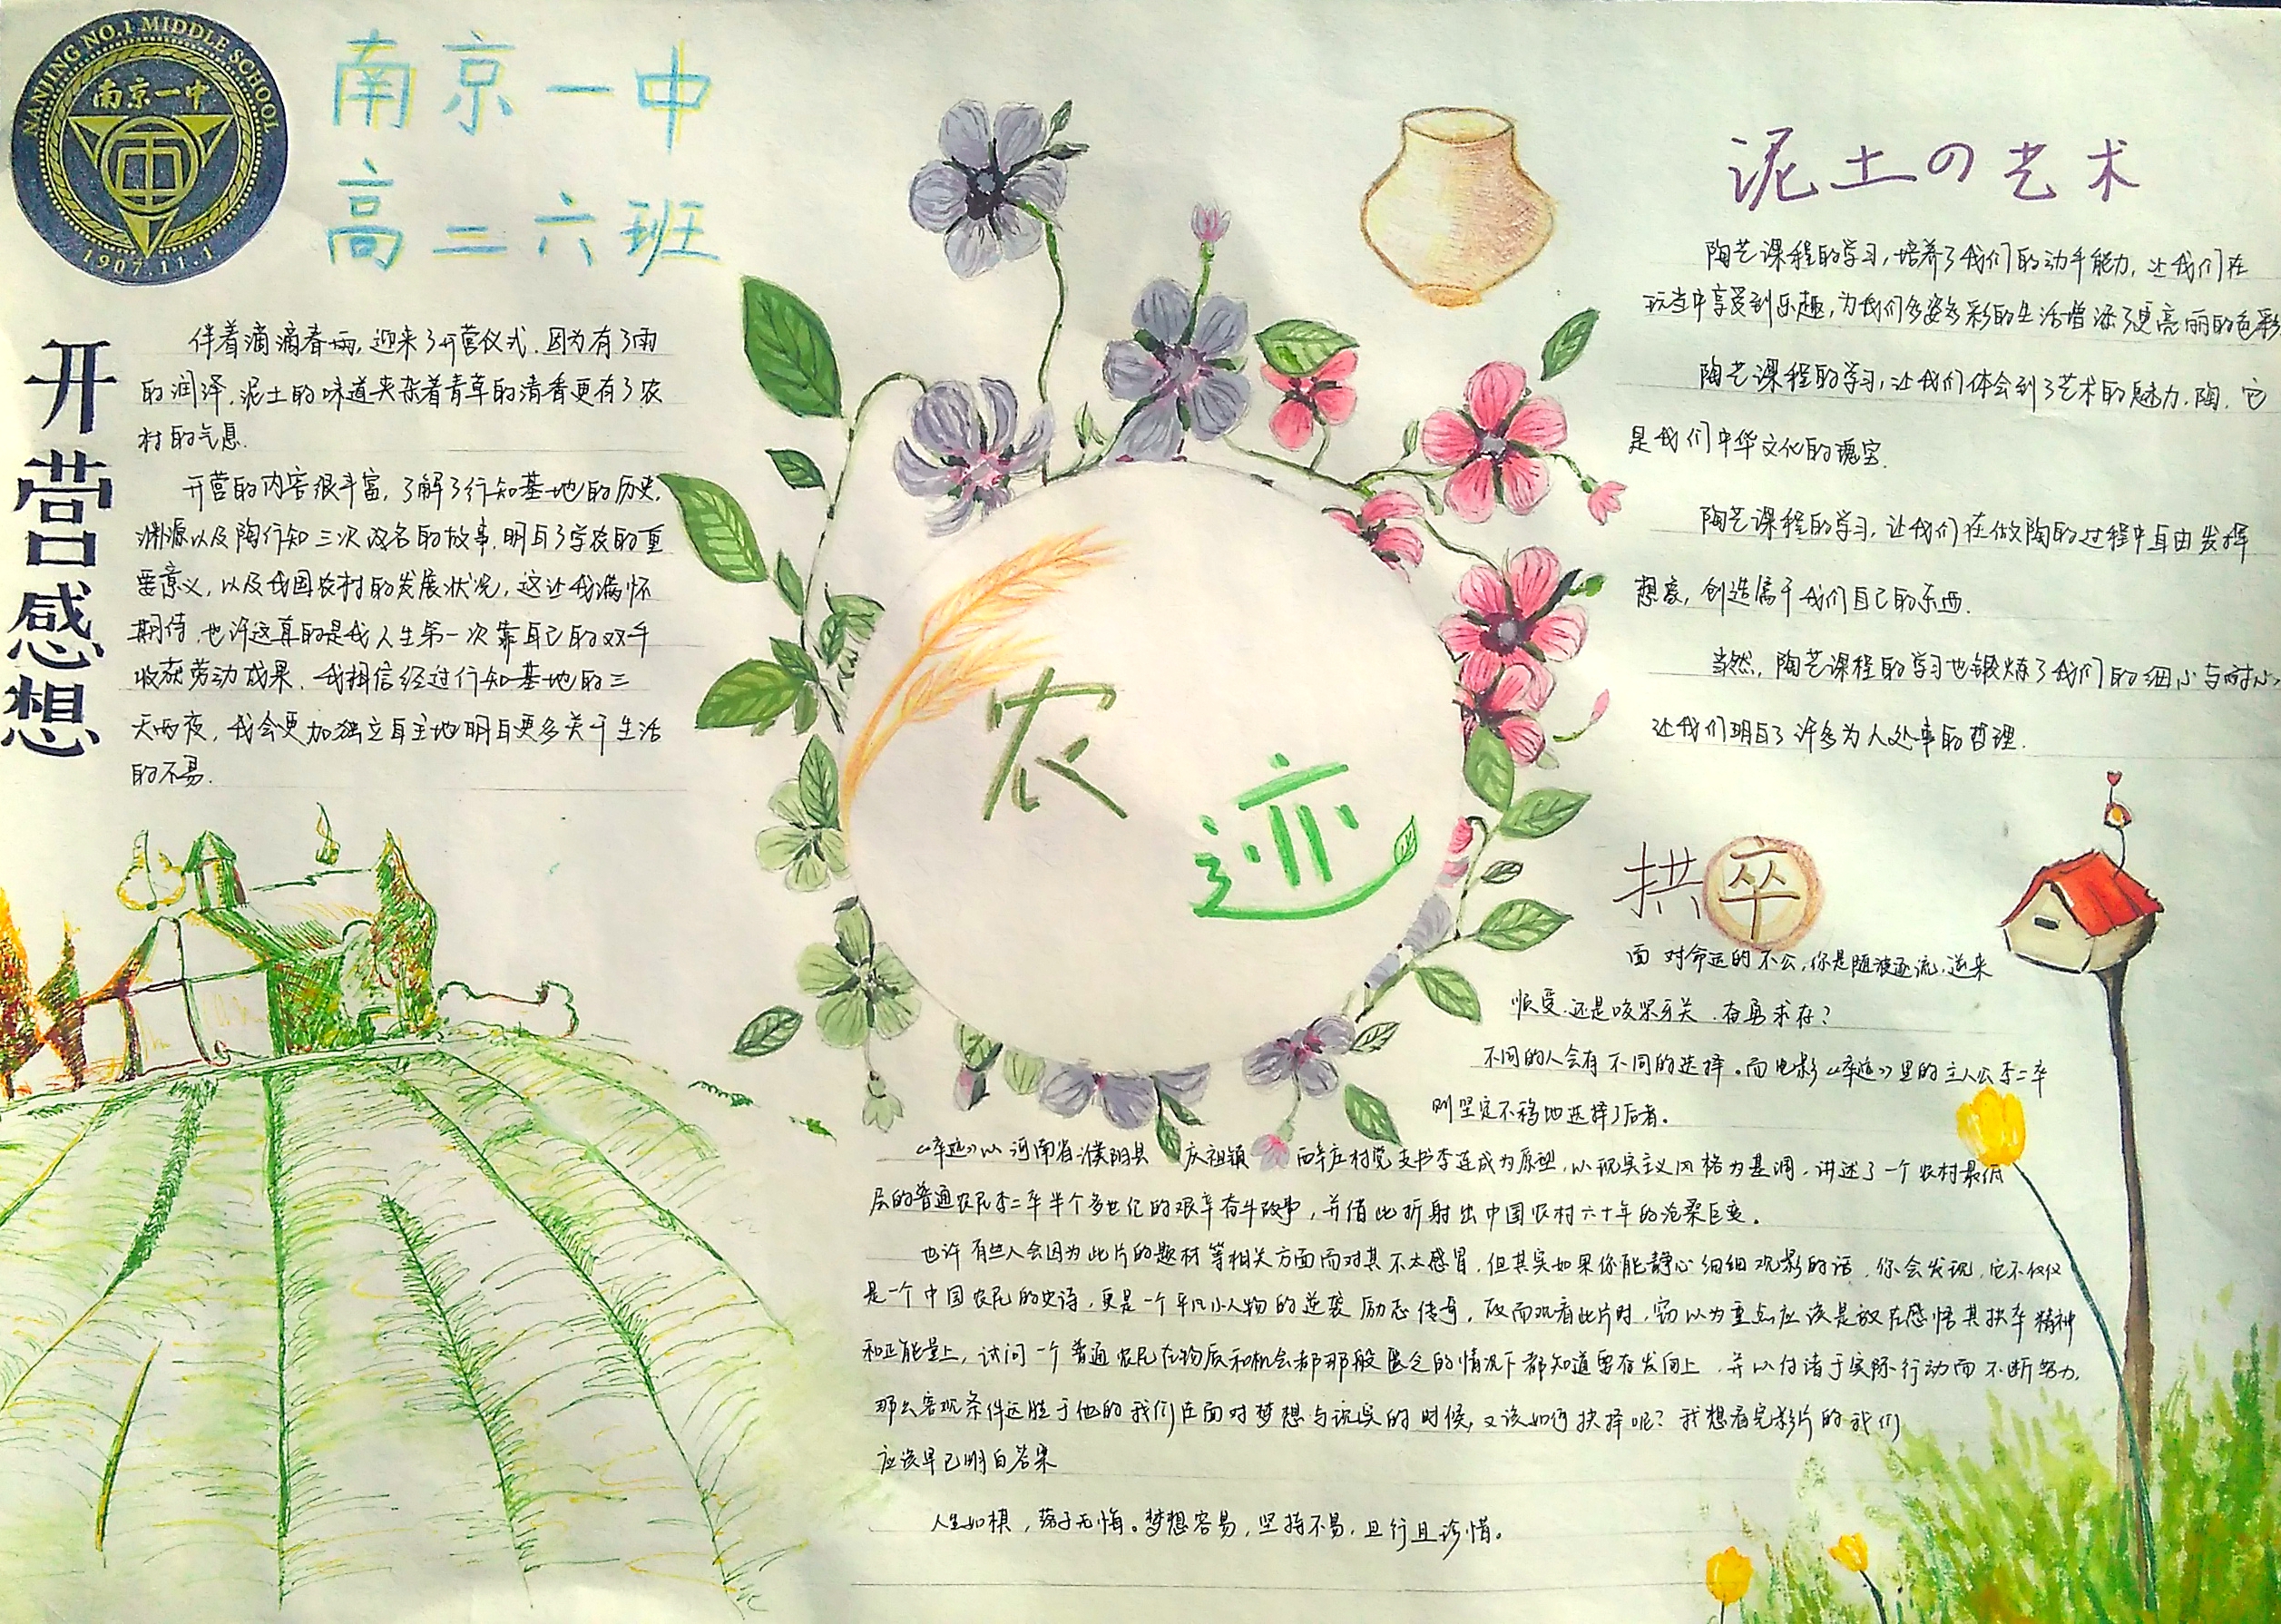 NANJING NO.1 MIDDLE SCHOOL
南京一中
1907.11.1
南京一中
高二六班
开营感想
伴着滴滴春雨,迎来了开营仪式.因为有了雨
的润泽,泥土的味道夹杂着青草的清香更有了农
村的气息.
开营的内容很丰富,了解了行知基地的历史,
渊源以及陶行知三次改名的故事.明白了学农的重
要意义,以及我国农村的发展状况,这让我满怀
期待,也许这真的是我人生第一次靠自己的双手
收获劳动成果.我相信经过行知基地的三
天两夜,我会更加独立自主地明白更多关于生活
的不易.
农
迹
泥土の艺术
陶艺课程的学习,培养了我们的动手能力,让我们在
玩当中享受到乐趣,为我们多姿多彩的生活增添了更亮丽的色彩
陶艺课程的学习,让我们体会到了艺术的魅力.陶,它
是我们中华文化的瑰宝.
陶艺课程的学习,让我们在做陶的过程中自由发挥
想象,创造属于我们自己的东西.
当然,陶艺课程的学习也锻炼了我们的细心与耐心,
让我们明白了许多为人处事的哲理.
拱卒
面对命运的不公,你是随波逐流,逆来
顺受.还是咬紧牙关,奋勇求存?
不同的人会有不同的选择。而电影《卒迹》里的主人公李二卒
则坚定不移地选择了后者。
《卒迹》以河南省濮阳县庆祖镇西辛庄村党支书李连成为原型,以现实主义风格为基调,讲述了一个农村最底
层的普通农民李二卒半个多世纪的艰辛奋斗故事,并借此折射出中国农村六十年的沧桑巨变。
也许有些人会因为此片的题材等相关方面而对其不太感冒,但其实如果你能静心细细观影的话,你会发现,它不仅仅
是一个中国农民的史诗,更是一个平凡小人物的逆袭励志传奇。故而观看此片时,窃以为重点应该是放在感悟其拱卒精神
和正能量上,试问一个普通农民在物质和机会都那般匮乏的情况下都知道要奋发向上,并以付诸于实际行动而不断努力,
那么客观条件远胜于他的我们在面对梦想与现实的时候,又该如何抉择呢?我想看完影片的我们
应该早已明白答案
人生如棋,落子无悔。梦想容易,坚持不易,且行且珍惜。